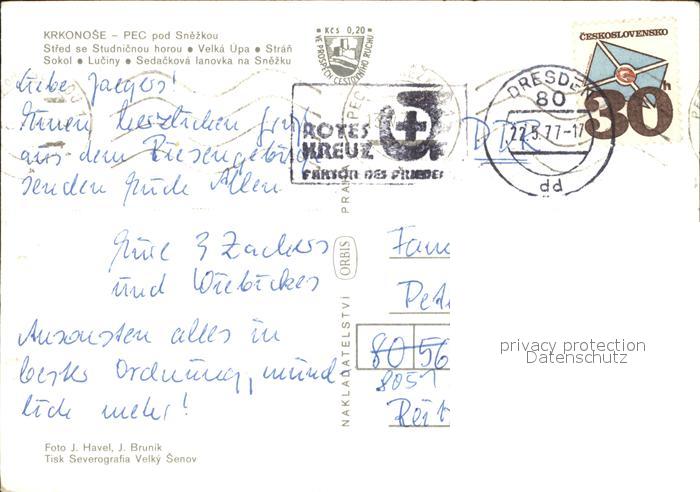 KRKONOŠE – PEC pod Sněžkou
Střed se Studničnou horou ● Velká Úpa ● Stráň
Sokol ● Lučiny ● Sedačková lanovka na Sněžku
Kčs 0,20
VE PROSPĚCH CESTOVNÍHO RUCHU
ČESKOSLOVENSKO
30h
DRESDEN
80
22.5.77-17
dd
ROTES
KREUZ
FAKTOR DES FRIEDENS
DDR
Liebe Jaegers!
Einen herzlichen Gruß
aus dem Riesengebirge
senden Euch Allen
Eure 3 Zackers
und Wiebickes
Ansonsten alles in
bester Ordnung, münd
lich mehr!
Fam
Pet
80 56
8051
PRA
ORBIS
NAKLADATELSTVÍ
privacy protection
Datenschutz
Foto J. Havel, J. Bruník
Tisk Severografia Velký Šenov